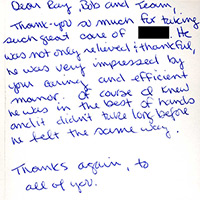 Dear Ray, Bob and Team,
Thank-you so much for taking
such great care of He
was not only relieved & thankful,
he was very impressed by
your caring and efficient
manor. Of course I knew
he was in the best of hands
and it didn't take long before
he felt the same way.
Thanks again, to
all of you.